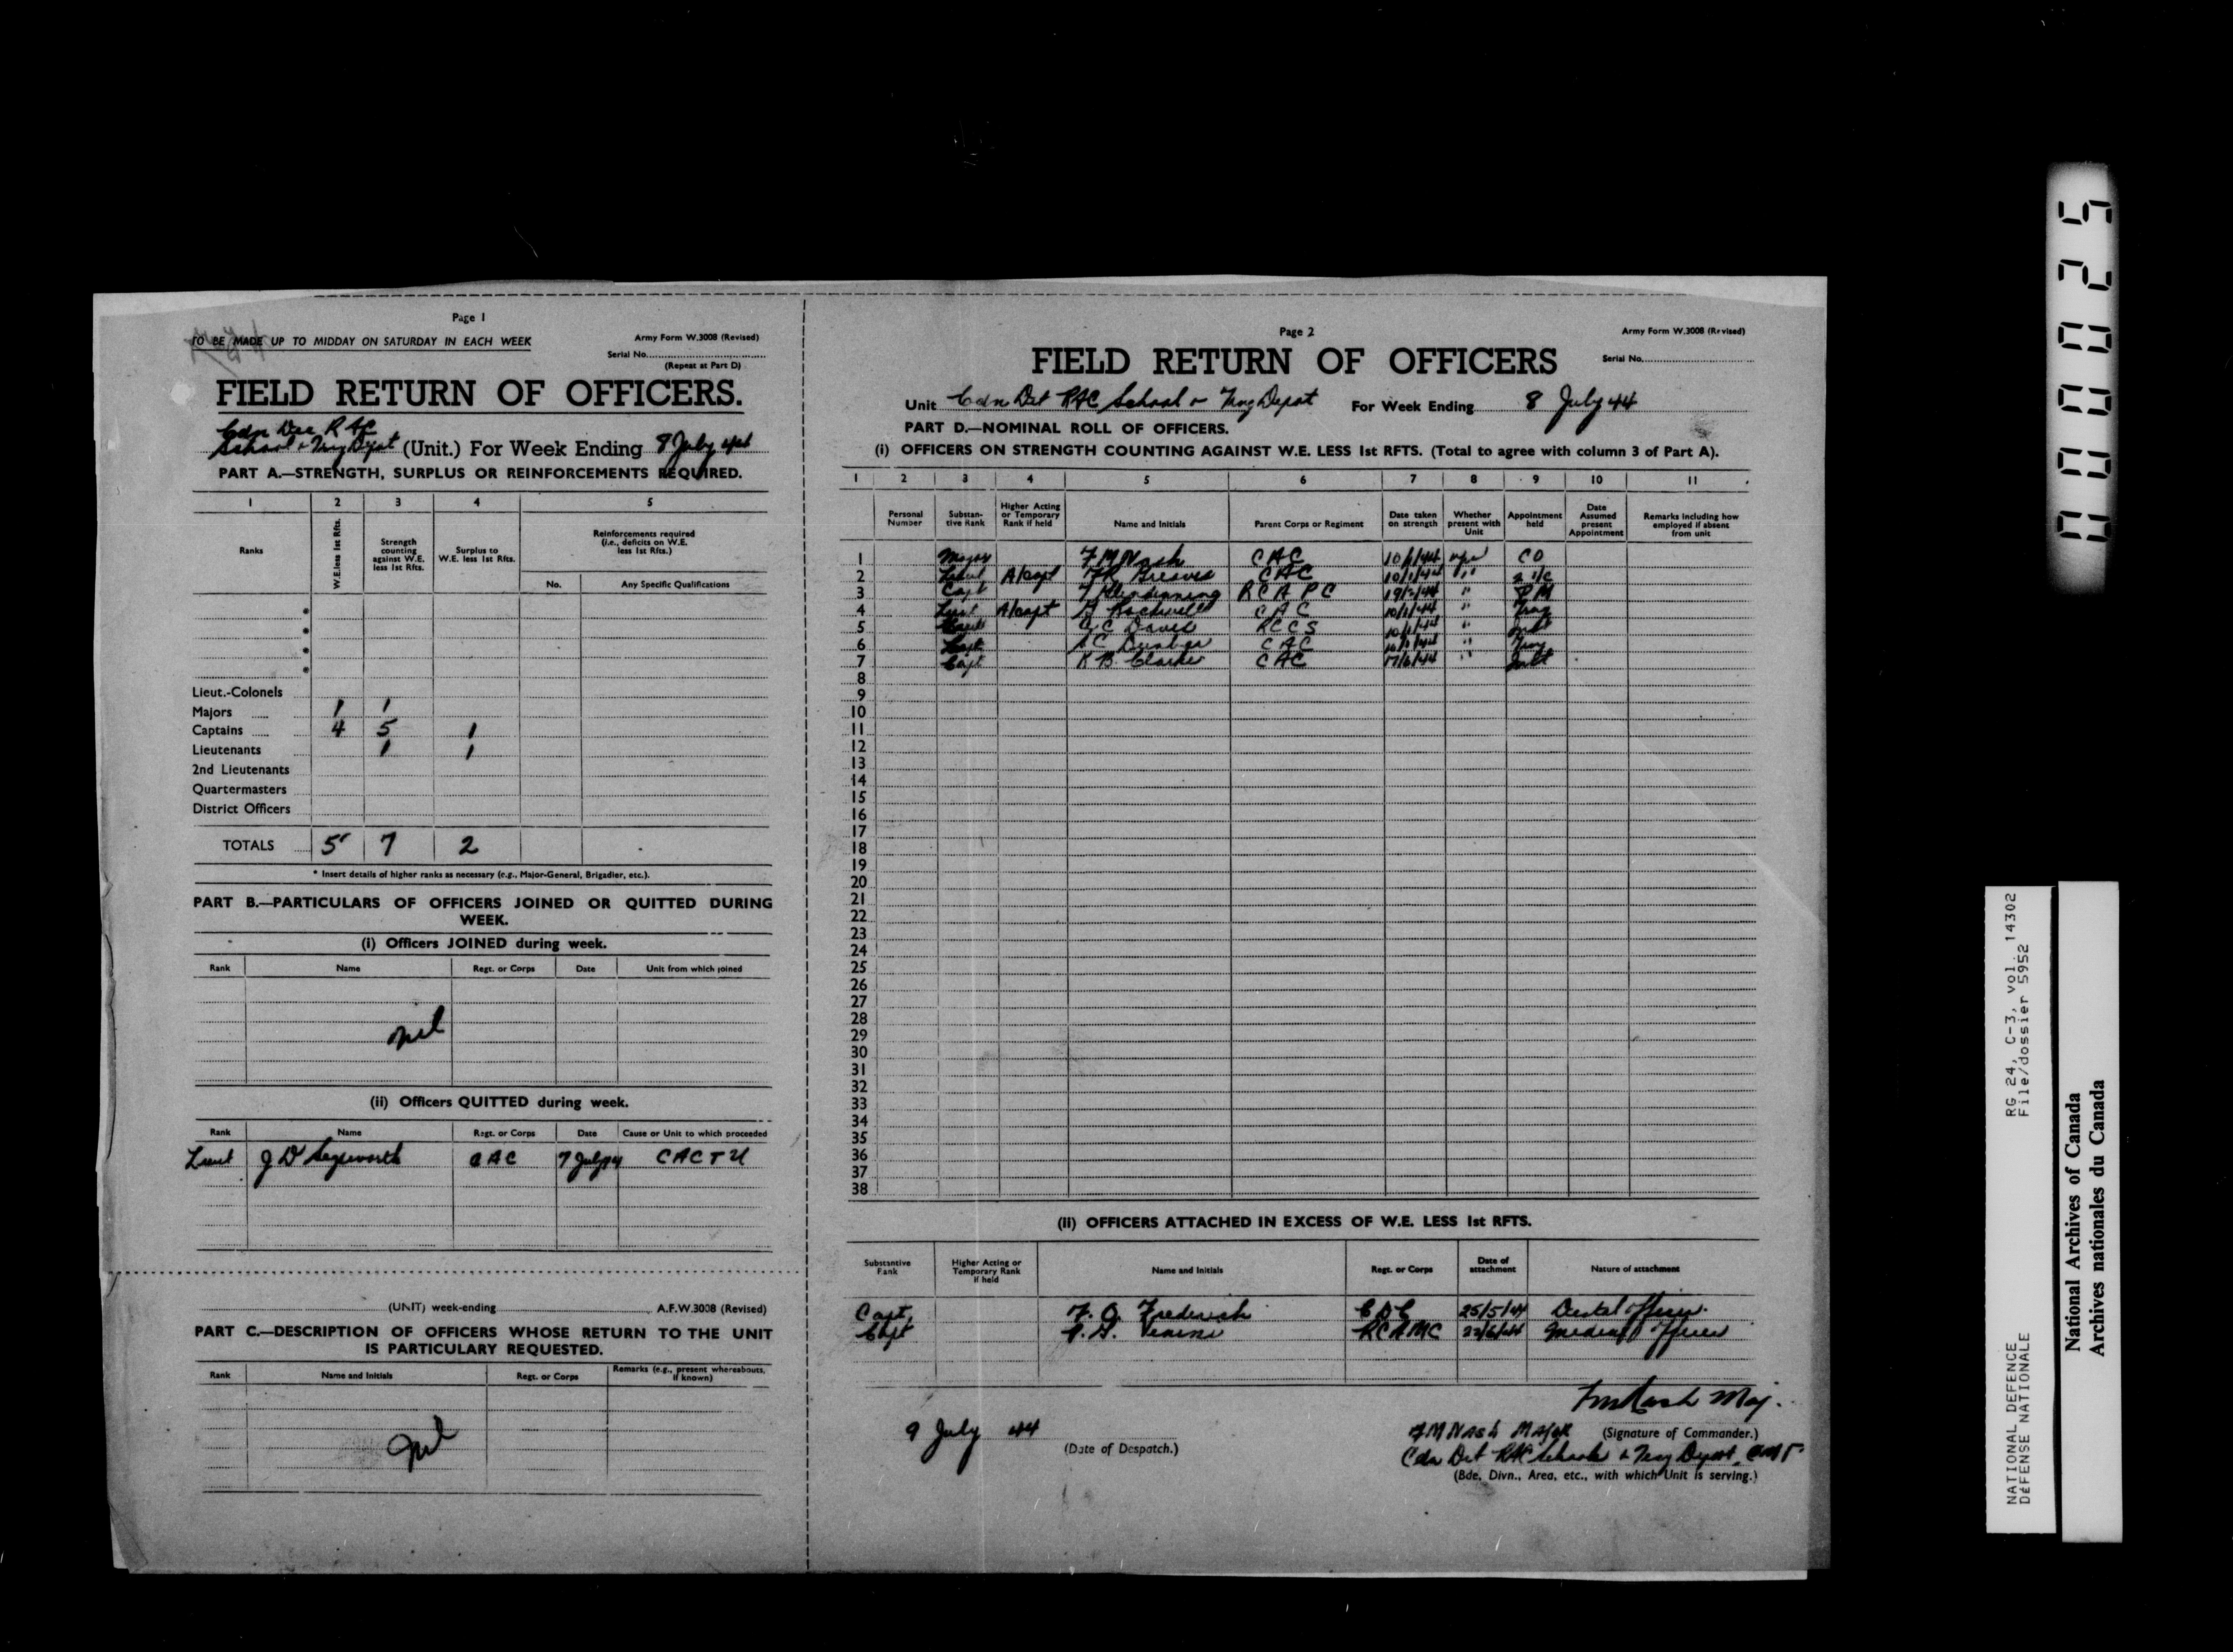 Page 1
TO BE MADE UP TO MIDDAY ON SATURDAY IN EACH WEEK
Army Form W.3008 (Revised)
Serial No.
(Repeat at Part D)
FIELD RETURN OF OFFICERS.
Cdn Det RAC
School & Trng Depot (Unit.) For Week Ending 8 July 44
PART A.—STRENGTH, SURPLUS OR REINFORCEMENTS REQUIRED.
1 2 3 4 5
Ranks
W.E. less 1st Rfts.
Strength counting against W.E. less 1st Rfts.
Surplus to W.E. less 1st Rfts.
Reinforcements required (i.e., deficits on W.E. less 1st Rfts.)
No. Any Specific Qualifications
*
*
*
*
Lieut.-Colonels
Majors 1 1
Captains 4 5 1
Lieutenants 1 1
2nd Lieutenants
Quartermasters
District Officers
TOTALS 5 7 2
* Insert details of higher ranks as necessary (e.g., Major-General, Brigadier, etc.).
PART B.—PARTICULARS OF OFFICERS JOINED OR QUITTED DURING
WEEK.
(i) Officers JOINED during week.
Rank Name Regt. or Corps Date Unit from which joined
nil
(ii) Officers QUITTED during week.
Rank Name Regt. or Corps Date Cause or Unit to which proceeded
Lieut J D CAC 7 July 44 CACTU
(UNIT) week-ending A.F.W.3008 (Revised)
PART C.—DESCRIPTION OF OFFICERS WHOSE RETURN TO THE UNIT
IS PARTICULARY REQUESTED.
Rank Name and Initials Regt. or Corps Remarks (e.g., present whereabouts, if known)
nil
Page 2
Army Form W.3008 (Revised)
FIELD RETURN OF OFFICERS
Serial No.
Unit Cdn Det RAC School & Trng Depot For Week Ending 8 July 44
PART D.—NOMINAL ROLL OF OFFICERS.
(i) OFFICERS ON STRENGTH COUNTING AGAINST W.E. LESS 1st RFTS. (Total to agree with column 3 of Part A).
1 2 3 4 5 6 7 8 9 10 11
Personal Number
Substantive Rank
Higher Acting or Temporary Rank if held
Name and Initials
Parent Corps or Regiment
Date taken on strength
Whether present with Unit
Appointment held
Date Assumed present Appointment
Remarks including how employed if absent from unit
1 Major F M Nash CAC 10/1/44 CO
2 Lieut A/Capt Greaves CAC 10/1/44 " 2 i/c
3 Capt RCAPC "  PM
4 Lieut A/Capt G Rockwell CAC 10/1/44 " Trng
5 Davis RCCS 10/1/44 "
6 CAC " Trng
7 Capt K B Clarke CAC 17/6/44 "
8
9
10
11
12
13
14
15
16
17
18
19
20
21
22
23
24
25
26
27
28
29
30
31
32
33
34
35
36
37
38
(II) OFFICERS ATTACHED IN EXCESS OF W.E. LESS 1st RFTS.
Substantive Rank
Higher Acting or Temporary Rank if held
Name and Initials
Regt. or Corps
Date of attachment
Nature of attachment
Capt. Frederick CDC 25/5/44 Dental Officer.
Capt RCAMC 22/6/44 Medical Officer
FM Nash Maj.
9 July 44
(Date of Despatch.)
FM Nash Major (Signature of Commander.)
Cdn Det RAC Schools & Trng Depot,
(Bde, Divn., Area, etc., with which Unit is serving.)
000025
RG 24, C-3, vol. 14302
File/dossier 5952
NATIONAL DEFENCE
DÉFENSE NATIONALE
National Archives of Canada
Archives nationales du Canada